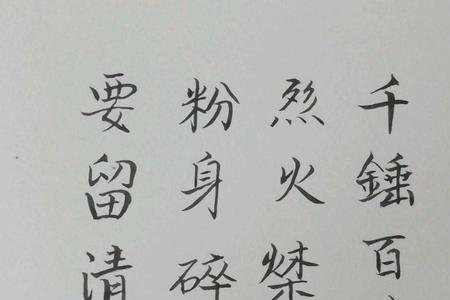 千錘百
烈火焚
粉身碎
要留清